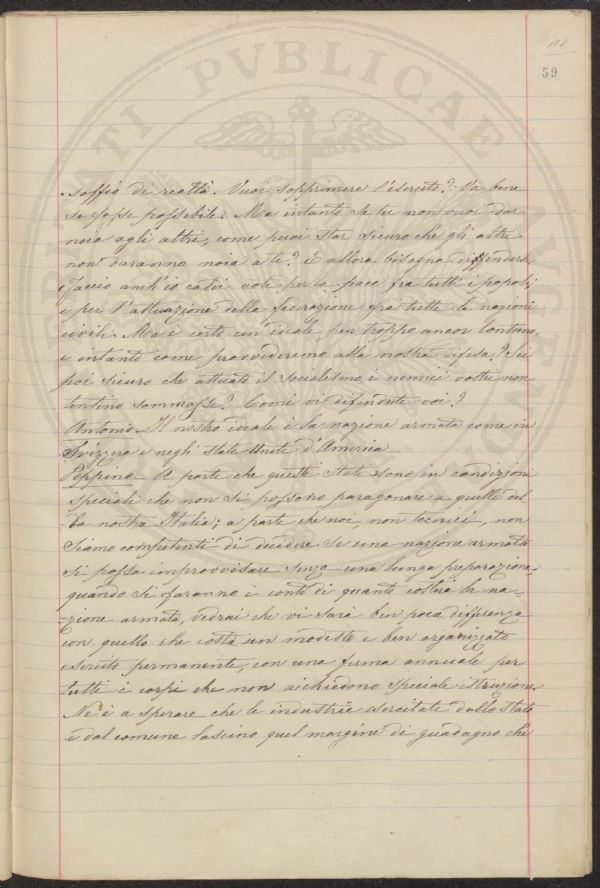 59
soffio di realtà. Vuoi sopprimere l'esercito? Va bene
se fosse possibile. Ma intanto se tu non vuoi dar
noia agli altri, come puoi star sicuro che gli altri
non daranno noia a te? E allora bisogna diffendersi.
Faccio anch'io caldi voti per la pace fra tutti i popoli,
e per l'attuazione della federazione fra tutte le nazioni
civili. Ma è certo un ideale pur troppo ancor lontano,
e intanto come provvederemo alla nostra difesa? Sei
poi sicuro che attuato il socialismo i nemici vostri non
tentino sommosse? Come vi difendete voi?
Antonio - Il nostro ideale è la nazione armata come in
Svizzera e negli Stati Uniti d'America
Peppino - A parte che questi stati sono in condizioni
speciali che non si possono paragonare a quelle del
la nostra Italia; a parte che noi, non tecnici, non
siamo competenti di decidere se una nazione armata
si possa improvvisare senza una lunga preparazione,
quando si faranno i conti di quanto costerà la na-
zione armata, vedrai che vi sarà ben poca differenza
con quello che costa un modesto e ben organizzato
esercito permanente, con una ferma annuale per
tutti i corpi che non richiedono speciale istruzione.
Nè è a sperare che le industrie esercitate dallo stato
e dal comune lascino quel margine di guadagno che
PVBLICAE